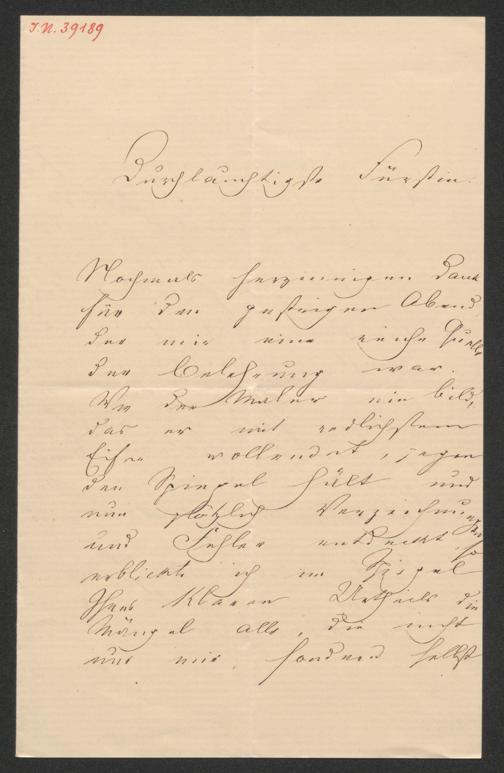 I.N. 39189
Durchlauchtigste Fürstin.
Nochmals herzinnigen Dank
für den gestrigen Abend
der mir eine reiche Quelle
der Belehrung war.
Wie der Maler ein Bild,
das er mit redlichstem
Eifer vollendet, gegen
den Spiegel hält und
nun plötzlich Verzeichnungen
und Fehler entdeckt, so
erblickte ich im Spiegel
Ihres klaren Urtheils die
Mängel alle, die nicht
nur mir, sondern selbst